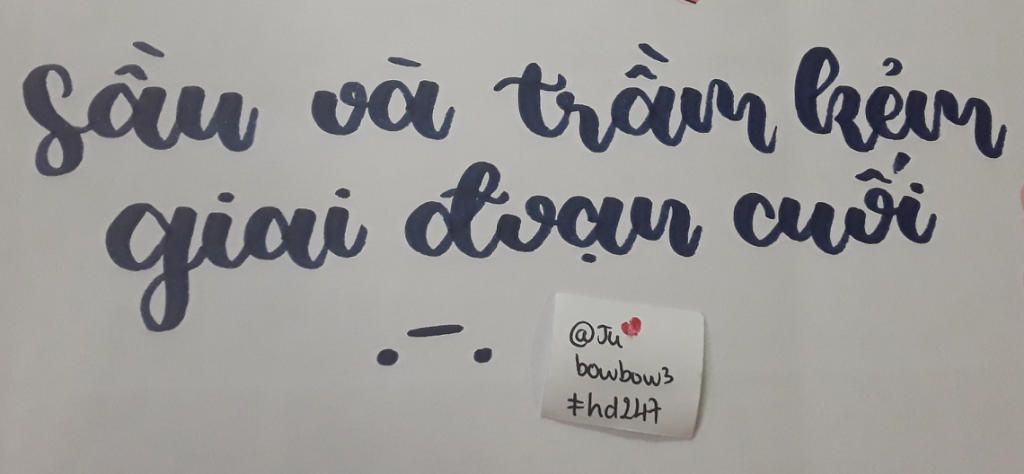 Sầu và trầm kẻm
giai đoạn cuối
@Ju
bowbow3
#hd247